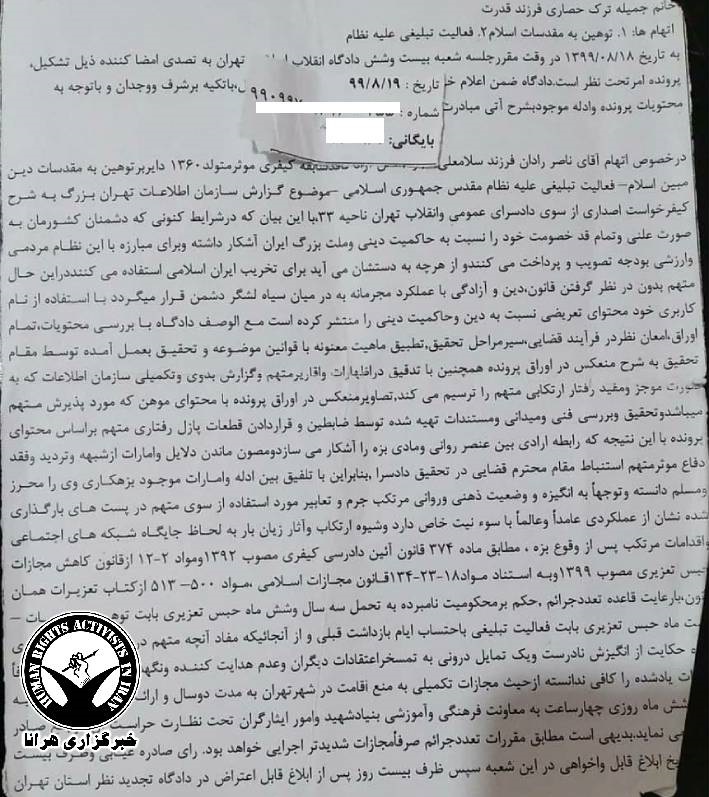 خانم جمیله ترک حصاری فرزند قدرت
اتهام ها: ۱. توهین به مقدسات اسلام ۲. فعالیت تبلیغی علیه نظام
به تاریخ ۱۳۹۹/۰۸/۱۸ در وقت مقررجلسه شعبه بیست وشش دادگاه انقلاب تهران به تصدی امضا کننده ذیل تشکیل،
پرونده امرتحت نظر است.دادگاه ضمن اعلام ،باتکیه برشرف ووجدان و باتوجه به
تاریخ : ۹۹/۸/۱۹
محتویات پرونده وادله موجودبشرح آتی مبادرت
شماره :
۹۹۰۹۹۷
بایگانی:
درخصوص اتهام آقای ناصر رادان فرزند کیفری موثرمتولد۱۳۶۰ دایربرتوهین به مقدسات دین
مبین اسلام– فعالیت تبلیغی علیه نظام مقدس جمهوری اسلامی –موضوع گزارش سازمان اطلاعات تهران بزرگ به شرح
کیفرخواست اصداری از سوی دادسرای عمومی وانقلاب تهران ناحیه ۳۳،با این بیان که درشرایط کنونی که دشمنان کشورمان به
صورت علنی وتمام قد خصومت خود را نسبت به حاکمیت دینی وملت بزرگ ایران آشکار داشته وبرای مبارزه با این نظام مردمی
وارزشی بودجه تصویب و پرداخت می کنندو از هرچه به دستشان می آید برای تخریب ایران اسلامی استفاده می کننددراین حال
متهم بدون در نظر گرفتن قانون،دین و آزادگی با عملکرد مجرمانه به در میان سیاه لشگر دشمن قرار میگردد با استفاده از نام
کاربری خود محتوای تعریضی نسبت به دین وحاکمیت دینی را منتشر کرده است مع الوصف دادگاه با بررسی محتویات،تمام
اوراق،امعان نظردر فرآیند قضایی،سیرمراحل تحقیق،تطبیق ماهیت معنونه با قوانین موضوعه و تحقیق بعمل آمده توسط مقام
تحقیق به شرح منعکس در اوراق پرونده همچنین با تدقیق دراظهارات واقاریرمتهم وگزارش بدوی وتکمیلی سازمان اطلاعات که به
صورت موجز ومفید رفتار ارتکابی متهم را ترسیم می کند،تصاویرمنعکس در اوراق پرونده با محتوای موهن که مورد پذیرش متهم
میباشدوتحقیق وبررسی فنی ومیدانی ومستندات تهیه شده توسط ضابطین و قراردادن قطعات پازل رفتاری متهم براساس محتوای
پرونده با این نتیجه که رابطه ارادی بین عنصر روانی ومادی بزه را آشکار می سازدومصون ماندن دلایل وامارات ازشبهه وتردید وفقد
دفاع موثرمتهم استنباط مقام محترم قضایی در تحقیق دادسرا ،بنابراین با تلفیق بین ادله وامارات موجود بزهکاری وی را محرز
ومسلم دانسته وتوجهاً به انگیزه و وضعیت ذهنی وروانی مرتکب جرم و تعابیر مورد استفاده از سوی متهم در پست های بارگذاری
شده نشان از عملکردی عامداً وعالماً با سوء نیت خاص دارد وشیوه ارتکاب وآثار زیان بار به لحاظ جایگاه شبکه های اجتماعی
واقدامات مرتکب پس از وقوع بزه ، مطابق ماده ۳۷۴ قانون آئین دادرسی کیفری مصوب ۱۳۹۲ومواد ۲-۱۲ ازقانون کاهش مجازات
حبس تعزیری مصوب ۱۳۹۹وبه استناد مواد۱۸-۲۳-۱۳۴قانون مجازات اسلامی ،مواد ۵۰۰– ۵۱۳ ازکتاب تعزیرات همان
بارعایت قاعده تعددجرائم ،حکم برمحکومیت نامبرده به تحمل سه سال وشش ماه حبس تعزیری بابت
ماه حبس تعزیری بابت فعالیت تبلیغی باحتساب ایام بازداشت قبلی و از آنجائیکه مفاد آنچه متهم
حکایت از انگیزش نادرست ویک تمایل درونی به تمسخراعتقادات دیگران وعدم هدایت کننده
یادشده را کافی ندانسته ازحیث مجازات تکمیلی به منع اقامت در شهرتهران به مدت دوسال و
شش ماه روزی چهارساعت به معاونت فرهنگی وآموزشی بنیادشهید وامور ایثارگران تحت نظارت صادر
می نماید،بدیهی است مطابق مقررات تعددجرائم صرفاًمجازات شدیدتر اجرایی خواهد بود. رای صادره بیست
ابلاغ قابل واخواهی در این شعبه سپس ظرف بیست روز پس از ابلاغ قابل اعتراض در دادگاه تجدید نظر استان تهران
HUMAN RIGHTS ACTIVISTS IN IRAN
خبرگزاری هرانا